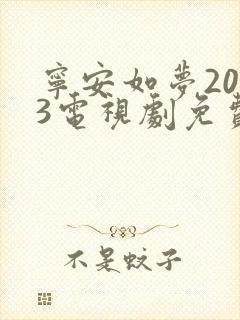 寧安如夢20
3電視劇免費
不是蚊子